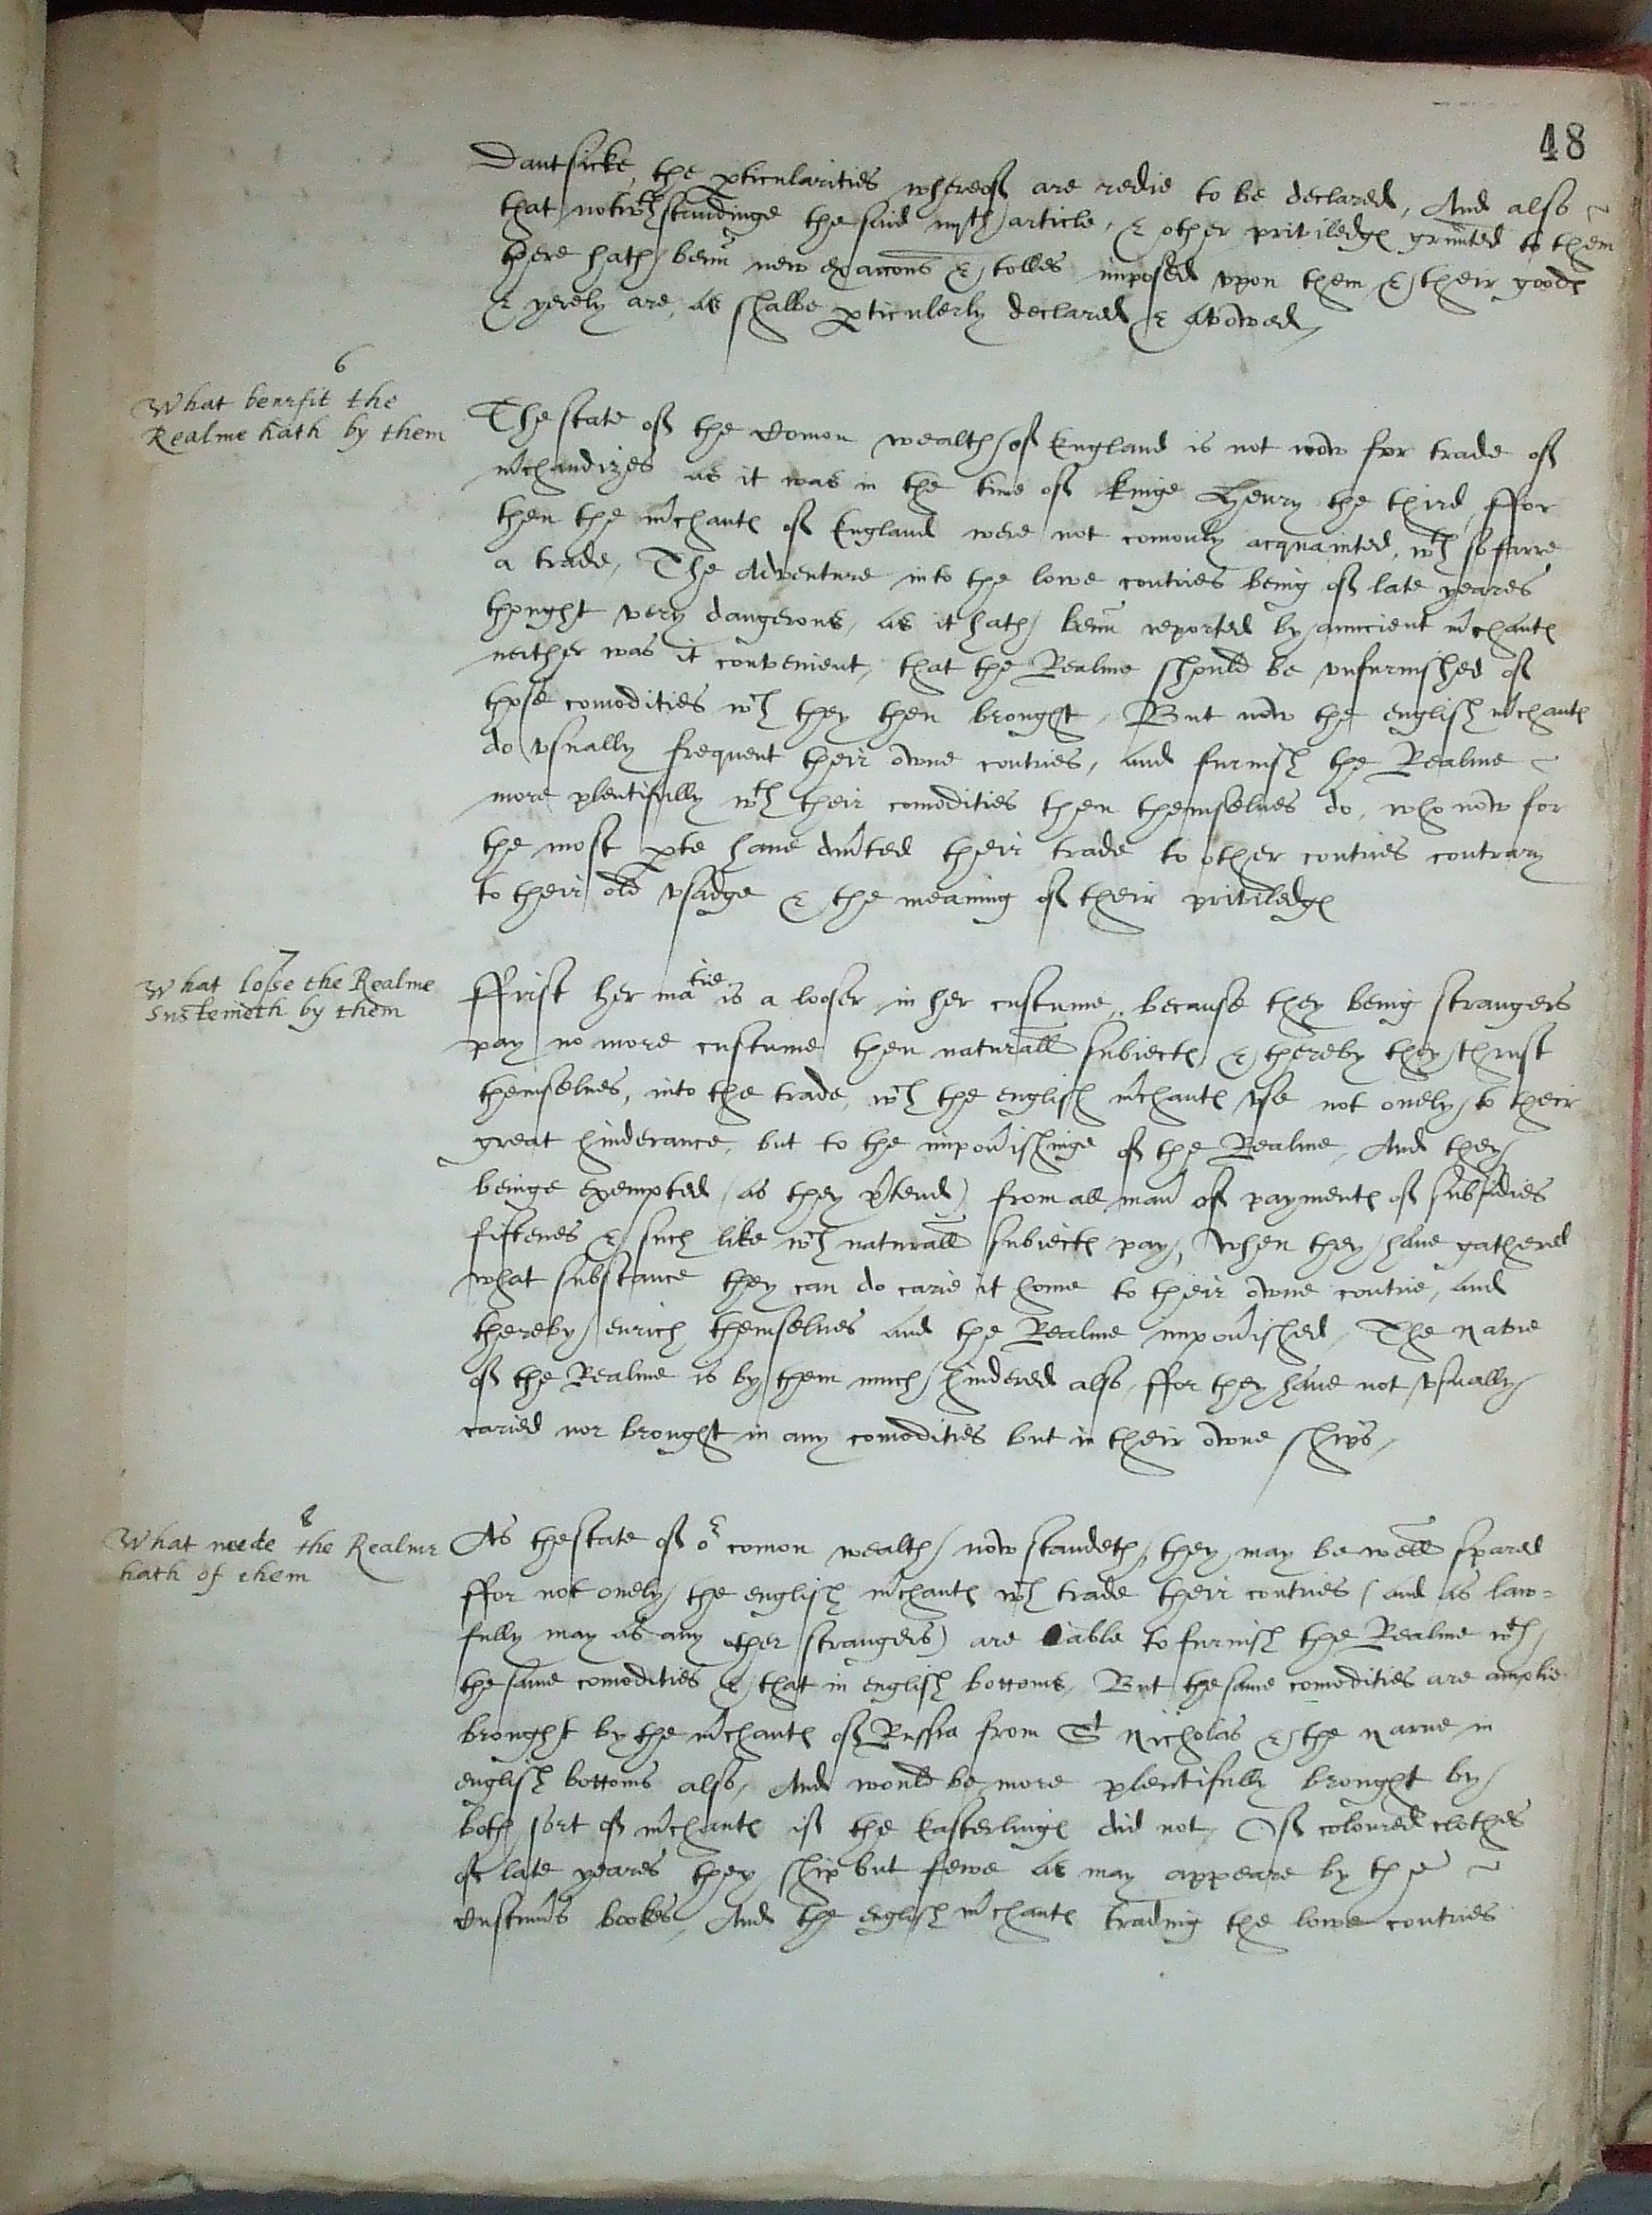 48
Dantsicke, the pticularities whereof are redie to be declared, And also
that notwthstandinge the said article, & other priviledges graunted to them
there hath benn new exaccons & tolles imposed vpon them & their goodes
& yerely are, as shalbe pticulerly declared & avowed,
6
What benefit the
Realme hath by them
The state of the Comon wealth of England is not now for trade of
mchandizes as it was in the time of kinge Henry the third, ffor
then the mchantes of England were not comonly acquainted, wth so farre
a trade, The Adventure into the lowe contries being of late yeares
thought very dangerous, as it hath benn reported by auncient mchantes
neither was it convenient, that the Realme should be vnfurnished of
those comodities wch they then brought, But now the english mchantes
do vsually frequent their owne contries, and furnish the Realme
more plentifully wth their comodities then themselues do, who now for
the most pte haue diuted their trade to other contries contrary
to their old vsadge & the meaning of their priviledges
7
What losse the Realme
Susteineth by them
ffirst her matie is a looser in her custume, because they being strangers
pay no more custume then naturall subiectes, & thereby they thrust
themselues, into the trade, wch the english mchantes vse not onely to their
great hinderance, but to the impouishinge of the Realme, And they
beinge exempted (as they ptend) from all man of paymentes of subsidies
fiftenes & such like wch naturall subiectes pay, when they haue gathered
what substance they can do carie it home to their owne contrie, and
thereby enrich themselues and the Realme impouished, The Navie
of the Realme is by them much hindered also, ffor they haue not vsually
caried nor brought in any comodities but in their owne ships,
8
What neede the Realme
hath of them
As the state of or comon wealth now standeth, they may be well spared
ffor not onely the english mchantes wch trade their contries (and as law-
fully may as any other strangers) are able to furnish the Realme wth
the same comodities & that in english bottoms, But the same comodities are amplie
brought by the mchantes of Russia from St Nicholas & the Narue in
english bottoms also, And would be more plentifully brought by
both sort of mchantes if the Easterlinges did not, Of coloured clothes
of late yeares they ship but fewe as may appeare by the
Custums bookes, And the english mchantes trading the lowe contries